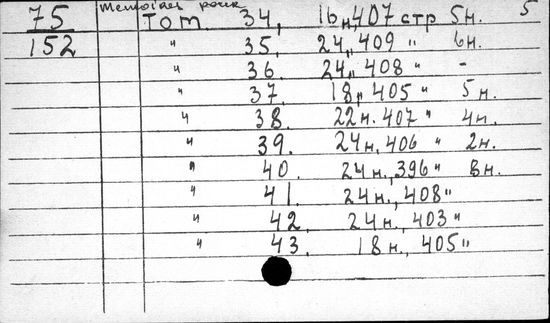 75 Memoires pour Том. 34, 16н, 407 стр 5н. 5
152 " 35, 24,, 409 " 6н.
" 36. 24,, 408 " -
" 37, 18,, 405 " 5н.
" 38. 22н. 407 " 4н.
" 39. 24н, 406 " 2н.
" 40. 24н., 396 " 3н.
" 41. 24н., 408 "
" 42. 24н., 403 "
" 43. 18н., 405 "